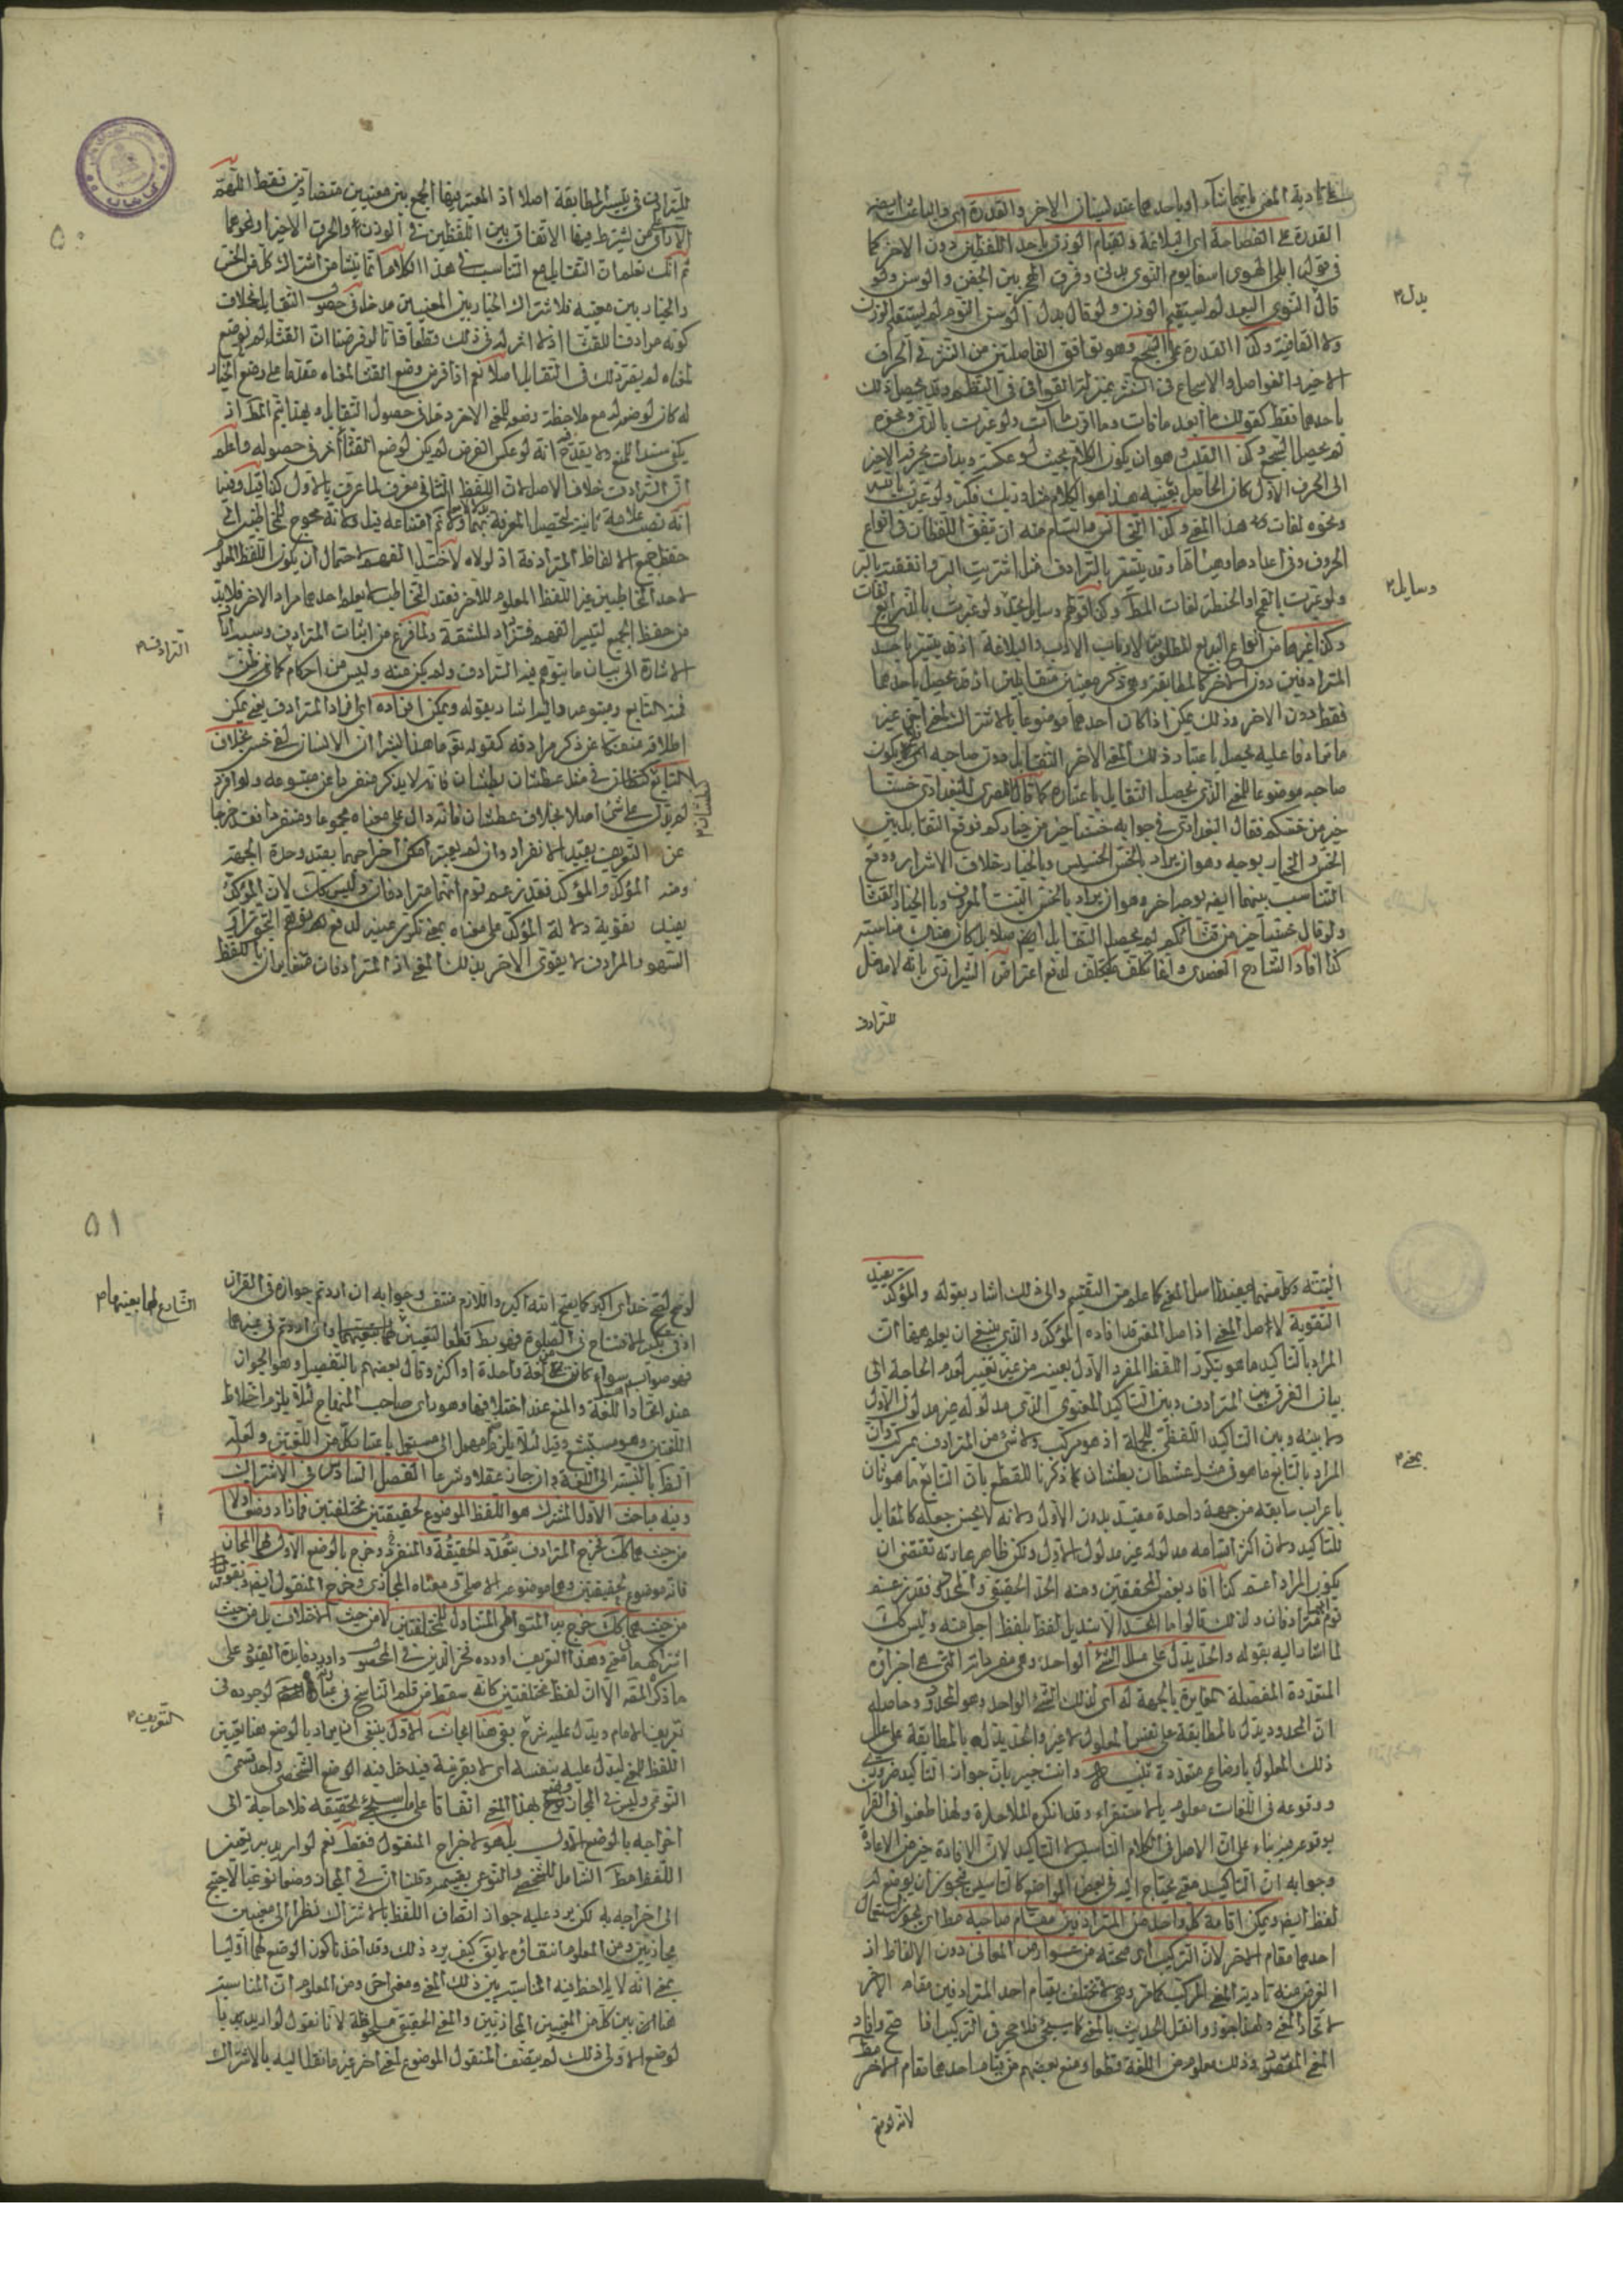 على تادية المعنى بايهما شاء او باحدهما عند نسيان الاخر والقدرة اى والباعث ايضا
القدرة على الفصاحة اى البلاغة لقيام الوزن باحد اللفظين دون الاخر كما
فى قوله ابلى الهوى اسفا يوم النوى بدنى وفرق الهجر بين الجفن والوسن ولو
قال النوى البعد لم يستقم الوزن ولو قال بدل الوسن النوم لم يستقم الوزن
ولا القافية وكذا القدرة على السجع وهو توافق الفاصلتين من النثر فى الحرف
الاخير والفواصل والاسجاع فى النثر بمنزلة القوافى فى النظم وقد يحصل ذلك
باحدهما فقط كقولك ما ابعد ما فات وما اقرب ما آت ولو عبرت بالذى ونحوه
لم يحصل السجع وكذا القلب وهو ان يكون الكلام بحيث لو عكسته وبدات بحرفه الاخير
الى الحرف الاول كان الحاصل بعينه هذا هو الكلام
ونحوه لفات هذا المعنى وكذا التجانس والتام منه ان يتفق اللفظان فى انواع
الحروف وفى اعدادها وهيئاتها وقد يتيسر بالترادف مثل اشتريت البر وانفقته بالبر
ولو عبرت بالقمح او الحنطة لفات المط وكذا
وكذا غيرها من انواع البديع المطلوبة لارباب الادب والبلاغة اذ قد يتيسر باحد
المترادفين دون الاخر كالمطابقة وهو ذكر معنيين متقابلين اذ قد يحصل باحدهما
فقط دون الاخر وذلك يمكن اذا كان احدهما موضوعا بالاشتراك لمعنى اخر غير
ما ترادفا عليه يحصل باعتبار ذلك المعنى الاخر التقابل دون صاحبه
صاحبه موضوعا للمعنى الذى يحصل التقابل باعتباره كما قال المصرى للبغدادى خسنا
خير من خسكم فقال البغدادى فى جوابه خسنا خير من خياركم فوقع التقابل بين
الخس والخيار بوجه وهو ان يراد بالخس الخسيس وبالخيار خلاف الاشرار ووقع
التناسب بينهما ايضا بوجه اخر وهو ان يراد بالخس النبت المعروف وبالخيار القثا
ولو قال خسنا خير من قثائكم لم يحصل التقابل ايضا اصلا بل كان هناك مناسبة
كذا افاد الشارح العضدى وانما تكلف ما تكلف لدفع اعتراض الشيرازى بانه لا مدخل
للترادف
بدل
وسايل
للترادف فى تيسر المطابقة اصلا اذ المعتبر فيها الجمع بين معنيين متضادين فقط اللهم
الا ان يشترط فيها الاتفاق بين اللفظين فى الوزن او الحرف الاخير او نحوهما
ثم انك تعلم ان التقابل مع التناسب فى هذا الكلام انما ينشا من اشتراك كل من الخس
والخيار بين معنييه فلاشتراك الخيار بين المعنيين مدخل فى حصول التقابل بخلاف
كونه مرادفا للقثا اذ لا اثر له فى ذلك قطعا فانا لو فرضنا ان القثا لم يوضع
لمعناه لم يقدح ذلك فى التقابل اصلا نعم اذا فرض وضع القثا لمعناه مقدما على وضع الخيار
له كان لوضعه له مع ملاحظة وضعه للمعنى الاخر دخل فى حصول التقابل وبهذا يتم المط اذ
يكفى سندا للمنع ولا يقدح فيه انه لو عكس الفرض لم يكن لوضع القثا اثر فى حصوله واعلم
ان الترادف خلاف الاصل لان اللفظ الثانى معرف لما عرف بالاول كذا قيل وفيه
انه نصب علامة ثانية لتحصيل المعرفة بهما ولا تم امتناعه قيل ولانه محوج للمخاطبين الى
حفظ جميع الالفاظ المترادفة اذ لولاه لاختل الفهم لاحتمال ان يكون اللفظ المعلوم
لاحد المخاطبين غير اللفظ المعلوم للاخر فعند التخاطب لا يعلم احدهما مراد الاخر فلابد
من حفظ الجميع لتيسر الفهم فتزداد المشقة ولما فرغ من اثبات المترادف
الاشارة الى بيان ما يتوهم فيه الترادف ولم يكن منه وليس من احكام
فمنه التابع ومتبوعه واليه اشار بقوله ويمكن افراده اى افراد المترادف يعنى يمكن
اطلاقه منفكا عن ذكر مرادفه كقوله تع ما هذا بشرا ان الانسان لفى خسر بخلاف
التابع كنطشان فى مثل عطشان نطشان فانه لا يذكر منفردا عن متبوعه ولو افرد
لم يدل على شئ اصلا بخلاف عطشان فانه دال على معناه مجموعا ومنفردا فقد خرجا
عن التعريف بقيد الانفراد وان لم يعتبر امكن اخراجهما بقيد وحدة الجهة
ومنه المؤكد والمؤكد فقد زعم قوم انهما مترادفان وليس كك لان المؤكد
يفيد تقوية دلالة المؤكد على معناه بمعنى تكرير عينه لدفع توهم التجوز او
السهو والمرادف لا يقوى الاخر بذلك المعنى اذ المترادفان متغايران باللفظ
الترادف
نطشان
٥٠
البتة وكل منهما يفيد اصل المعنى كما علم من التقسيم والى ذلك اشار بقوله والمؤكد يفيد
التقوية لا اصل المعنى اذ اصل المعنى قد افاده المؤكد والذى ينبغى ان يعلم هنا ان
المراد بالتاكيد ما هو بتكرير اللفظ المفرد الاول بعينه من غير تغيير لعدم الحاجة الى
بيان الفرق بين المترادف وبين التاكيد المعنوى الذى مدلوله غير مدلول الاول
ولا بينه وبين التاكيد اللفظى للجملة اذ هو مركب ولا شئ من المترادف بمركب وان
المراد بالتابع ما هو فى مثل عطشان نطشان كما ذكرنا للقطع بان التابع ما هو ثان
باعراب سابقه من جهة واحدة مقيد بدون الاول ولانه لا يحسن جعله كالمقابل
للتاكيد ولان اكثر اقسامه مدلوله غير مدلول الاول ولكن ظاهر عبارته تقتضى ان
يكون المراد اعم كذا افاد بعض المحققين ومنه الحد الحقيقى والمحدود فقد زعم
قوم انهما مترادفان ولذلك قالوا ما الحد الا تبديل لفظ بلفظ اجلى منه وليس كك
لما اشار اليه بقوله والحد يدل على علل الشئ الواحد وهى مفرداته التى هى اجزاؤه
المتعددة المفصلة المغايرة بالجهة له اى لذلك الشئ الواحد وهو المحدود وحاصله
ان المحدود يدل بالمطابقة على نفس المعلول لا غير والحد يدل بالمطابقة على علل
ذلك المعلول باوضاع متعددة وانت خبير بان جواز التاكيد ضرورى
ووقوعه فى اللغات معلوم بالاستقراء وقد انكره الملاحدة ولهذا طعنوا فى القران
بوقوعه فيه بناء على ان الاصل فى الكلام التاسيس لا التاكيد لان الافادة خير من الاعادة
وجوابه ان التاكيد معنى يحتاج اليه فى بعض المواضع كالتاسيس فيجوز ان يوضع له
لفظ ايضا ويمكن اقامة كل واحد من المترادفين مقام صاحبه مطا اى يجوز استعمال
احدهما مقام الاخر لان التركيب اى صحته من عوارض المعانى دون الالفاظ اذ
الغرض منه تادية المعنى المركب كما مر وهى لا تختلف بقيام احد المترادفين مقام الاخر
لاتحاد المعنى ولهذا جوزوا نقل الحديث بالمعنى كما سيجئ فلا حجر فى التركيب اذا صح وافاد
المعنى المقصود وذلك معلوم من اللغة قطعا ومنع بعضهم من قيام احدهما مقام الاخر مطا
لانه لو صح
بمعنى
لو صح لصح خداى اكبر كما يصح الله اكبر واللازم منتف وجوابه ان اردتم جوازه فى القران
او فى تكبيرة الافتتاح فى الصلوة فهو بط قطعا لتعيين الشارع لهما بعينهما وان اردتم فى غيرهما
فهو صواب سواء كانتا من لغة واحدة او اكثر وقال بعضهم بالتفصيل وهو الجواز
عند اتحاد اللغة والمنع عند اختلافها وهو راى صاحب المنهاج لئلا يلزم اختلاط
اللغتين وهو مستبشع وقيل لئلا يلزم ضم مهمل الى مستعمل باعتبار كل من اللغتين ولعله
انظر بالنسبة الى اللغة وان جاز عقلا وشرعا الفصل السادس فى الاشتراك
وفيه مباحث الاول المشترك هو اللفظ الموضوع لحقيقتين مختلفتين فما زاد وضعا اولا
من حيث هما كك فخرج المترادف بتعدد الحقيقة والمنفرد وخرج بالوضع الاول المجاز
فانه موضوع لحقيقتين وهما موضوعه الاصلى ومعناه المجازى وخرج المنقول ايضا وبقوله
من حيث هما كك خرج به المتواطى المتناول للمختلفتين لا من حيث الاختلاف بل من حيث
اشتراكهما فى معنى وهذا التعريف اورده فخر الدين فى المحصول وايراد فايدة القيود على
ما ذكره المص الا ان لفظ مختلفتين كانه سقط من قلم الناسخ فى لوجوده فى
تعريف الامام ويدل عليه شرح بقى هنا ابحاث الاول ينبغى ان يراد بالوضع هنا تعيين
اللفظ لمعنى ليدل عليه بنفسه اى لا بقرينة فيدخل فيه الوضع الشخصى واحد قسمى
النوعى وليس فى المجاز وضع بهذا المعنى اتفاقا على ما سيجئ تحقيقه فلا حاجة الى
اخراجه بالوضع الاول بل هو لاخراج المنقول فقط نعم لو اريد به تعيين
اللفظ مطا الشامل للشخصى والنوعى بقسميه وقلنا ان فى المجاز وضعا نوعيا لاحتيج
الى اخراجه به لكن يرد عليه جواز اتصاف اللفظ بالاشتراك نظرا الى معنيين
مجازيين ومن المعلوم انتفاؤه لا يق كيف يرد ذلك وقد اخذنا كون الوضع لهما اوليا
بمعنى انه لا يلاحظ فيه المناسبة بين ذلك المعنى ومعنى اخر ومن المعلوم ان المناسبة
هنا بين كل من المعنيين المجازيين والمعنى الحقيقى ملحوظة لانا نقول لو اريد
لوضع الاولى ذلك لم يتصف المنقول الموضوع لمعنى اخر غير ما نقل اليه بالاشتراك
الشارع لهما بعينهما
التعريف
٥١